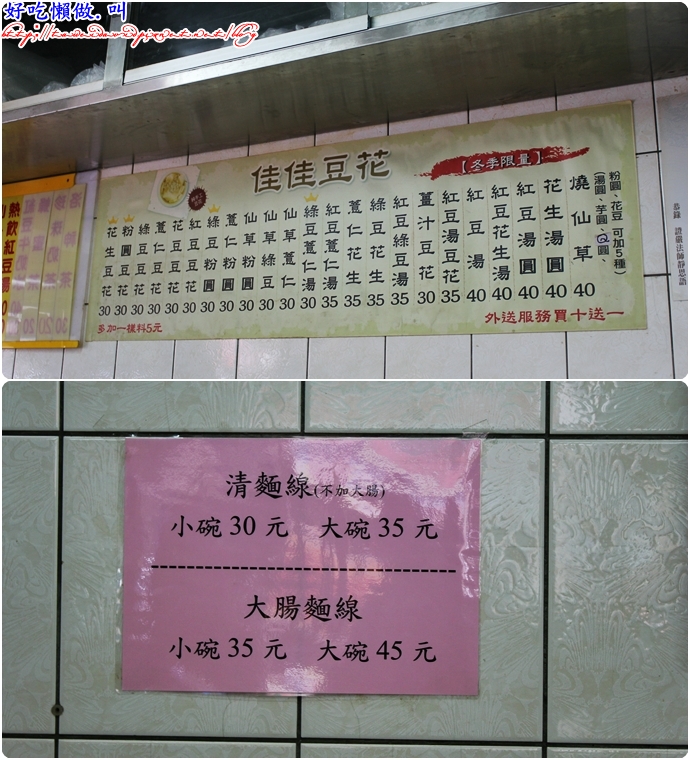 好吃懶做.叫
佳佳豆花
【冬季限量】
粉圓、花豆 可加5種
(湯圓、芋圓、Q圓、)
燒仙草 40
花生湯圓 40
紅豆湯圓 40
紅豆花生湯 40
紅豆湯 40
紅豆湯豆花 35
薑汁豆花 30
紅豆綠豆湯 35
綠豆花生 35
薏仁花生 35
紅豆薏仁湯 35
綠豆薏仁湯 30
仙草薏仁 30
仙草綠豆 30
仙草粉圓 30
薏仁粉圓 30
綠豆粉圓 30
紅豆豆花 30
花豆豆花 30
薏仁豆花 30
綠豆豆花 30
粉圓豆花 30
花生豆花 30
多加一樣料5元
外送服務買十送一
恭錄 證嚴法師靜思語
熱飲紅豆湯
清麵線(不加大腸)
小碗 30 元 大碗 35 元
大腸麵線
小碗 35 元 大碗 45 元